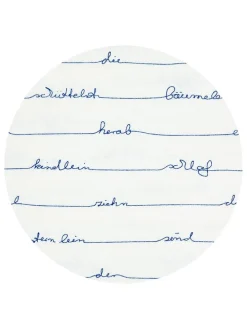 die
schüttelt bäumele
herab e
kindlein schlaf
e ziehn d
stern lein sind
den